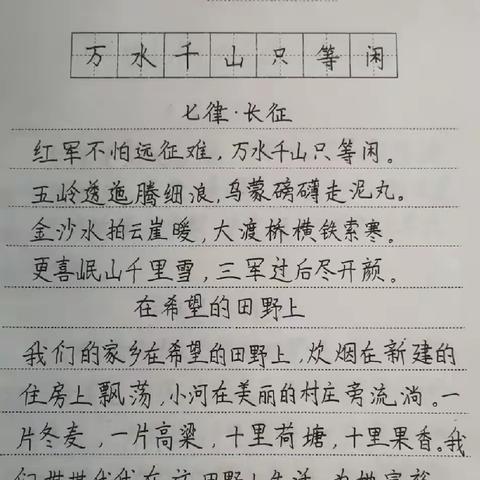 万水千山只等闲
七律·长征
红军不怕远征难，万水千山只等闲。
五岭逶迤腾细浪，乌蒙磅礴走泥丸。
金沙水拍云崖暖，大渡桥横铁索寒。
更喜岷山千里雪，三军过后尽开颜。
在希望的田野上
我们的家乡在希望的田野上，炊烟在新建的
住房上飘荡，小河在美丽的村庄旁流淌。一
片冬麦，一片高粱，十里荷塘，十里果香。我
们世世代代在这田野上生活，为她富裕